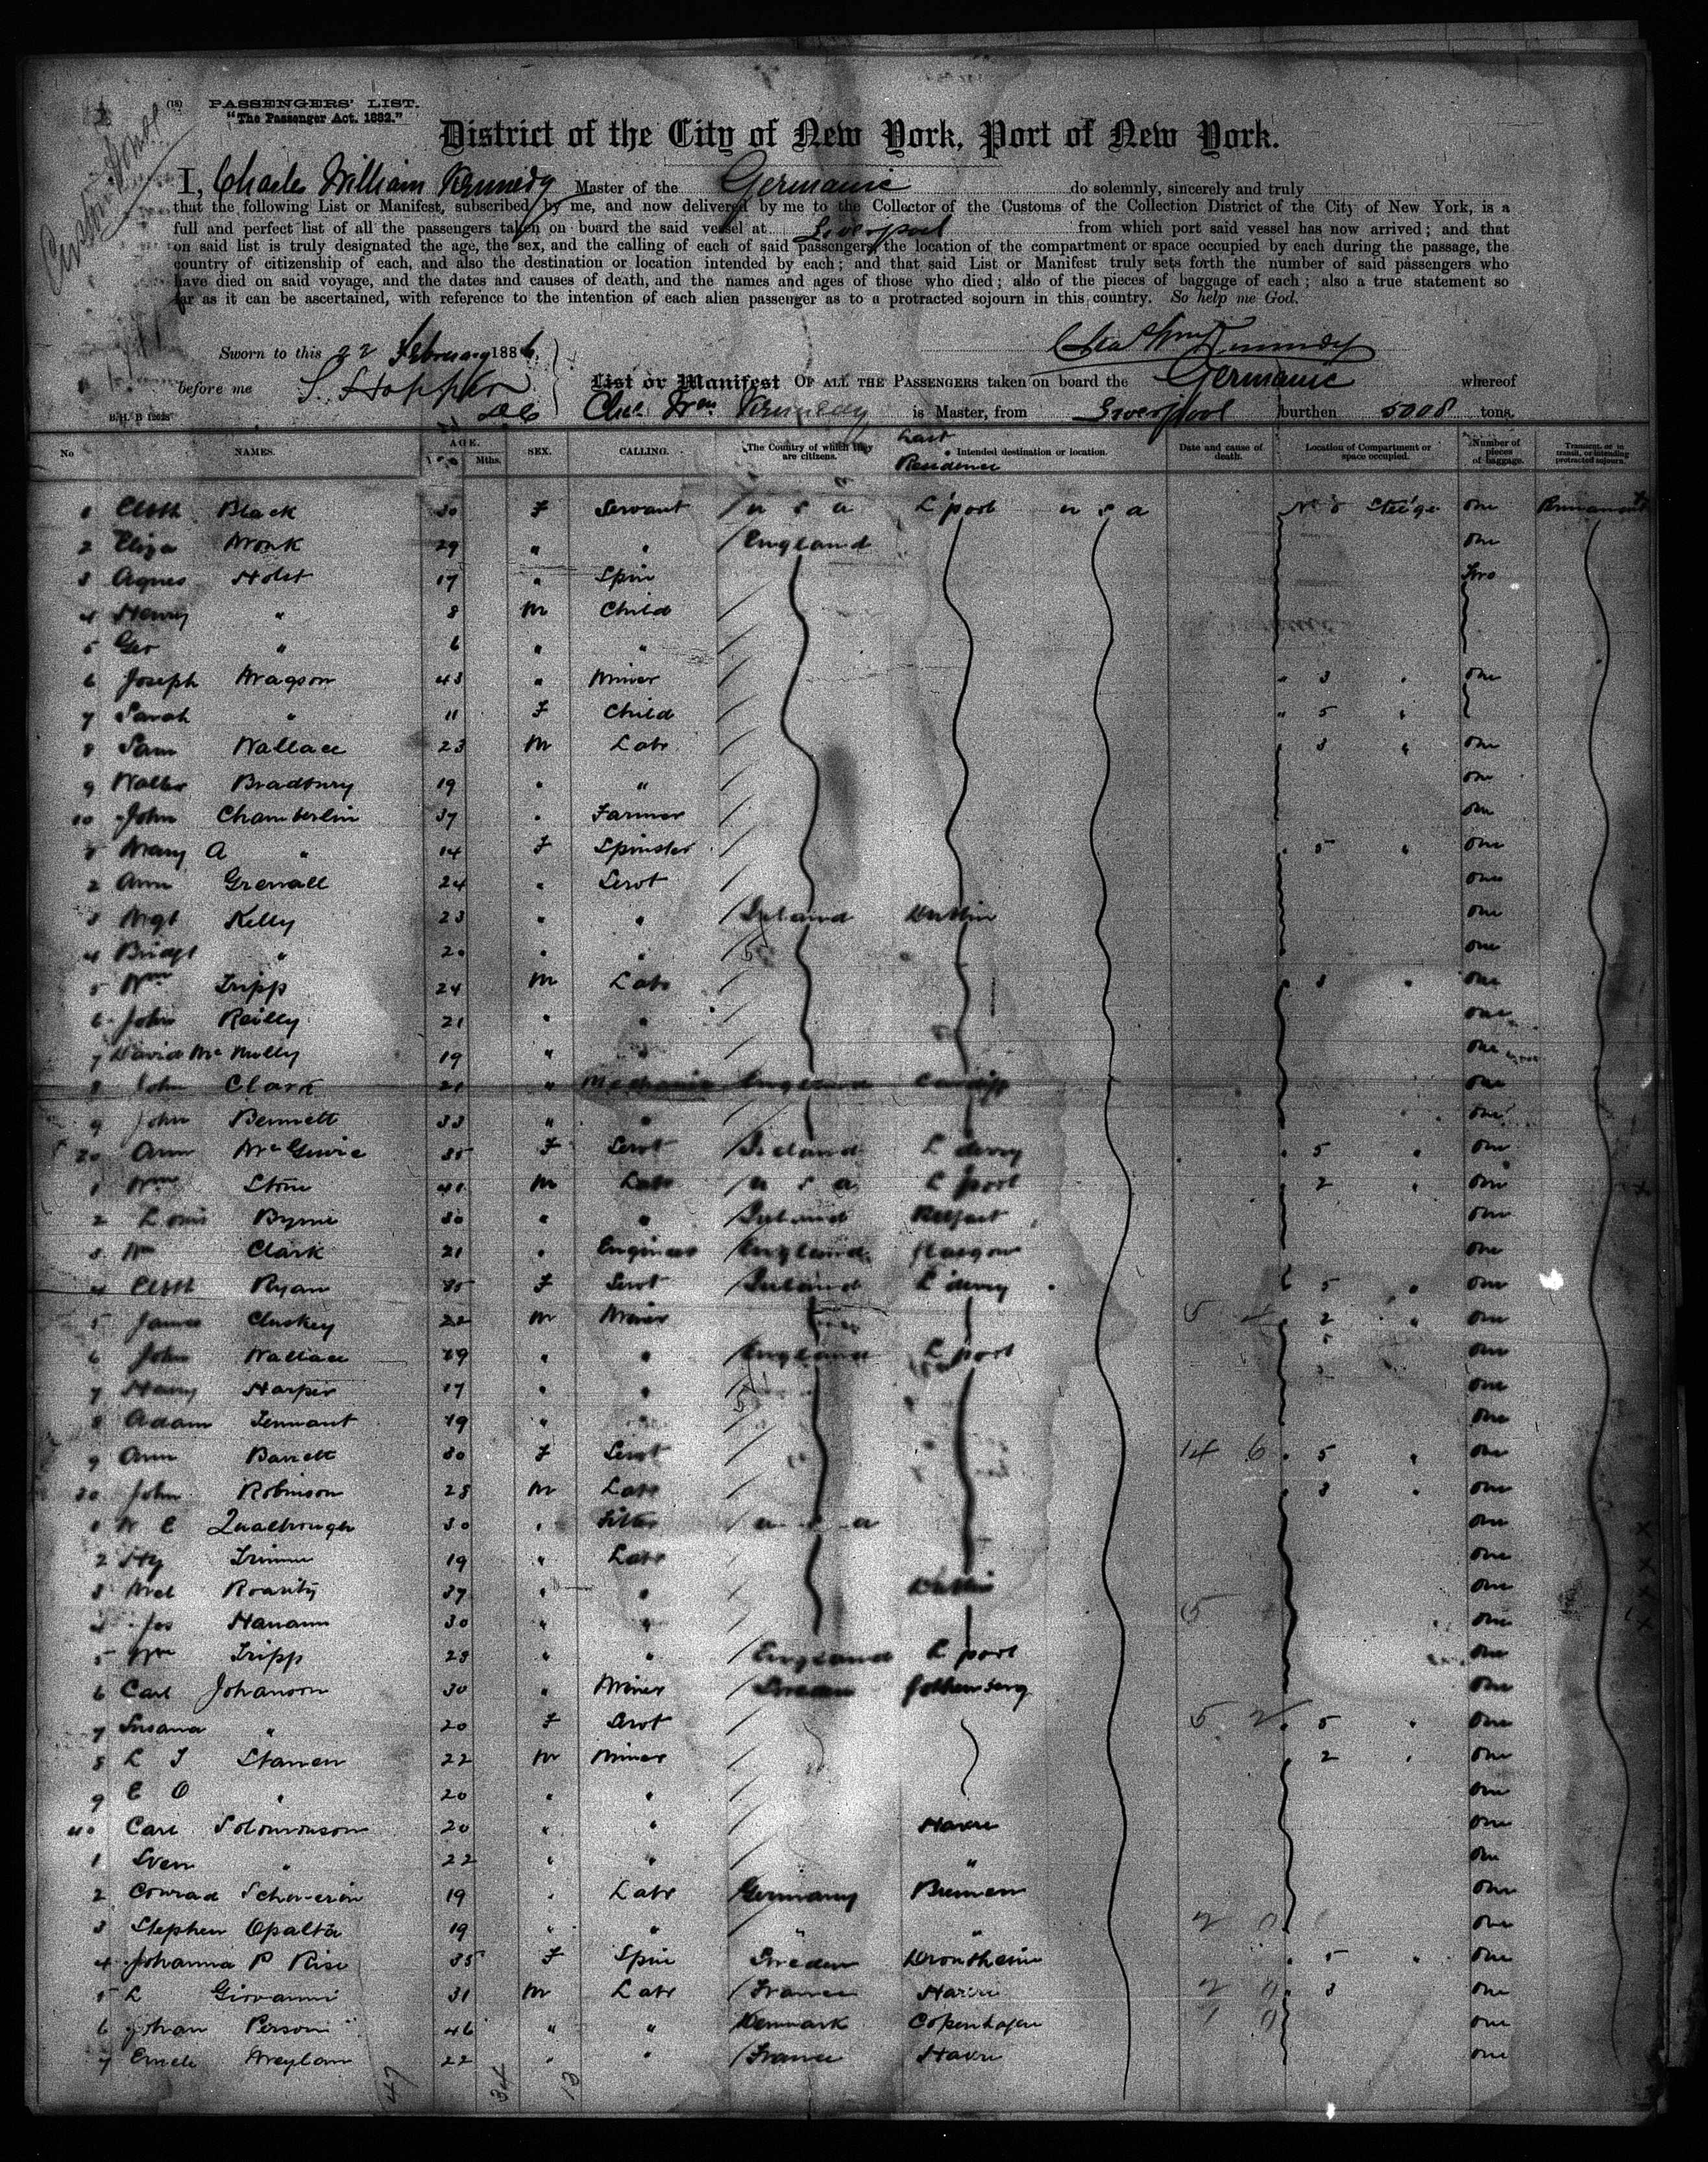 (18) PASSENGERS' LIST.
"The Passenger Act. 1882."
District of the City of New York, Port of New York.
I, Charles William Kennedy Master of the Germanic do solemnly, sincerely and truly
that the following List or Manifest, subscribed by me, and now delivered by me to the Collector of the Customs of the Collection District of the City of New York, is a
full and perfect list of all the passengers taken on board the said vessel at Liverpool from which port said vessel has now arrived; and that
on said list is truly designated the age, the sex, and the calling of each of said passengers, the location of the compartment or space occupied by each during the passage, the
country of citizenship of each, and also the destination or location intended by each; and that said List or Manifest truly sets forth the number of said passengers who
have died on said voyage, and the dates and causes of death, and the names and ages of those who died; also of the pieces of baggage of each; also a true statement so
far as it can be ascertained, with reference to the intention of each alien passenger as to a protracted sojourn in this country. So help me God.
Sworn to this 22 February 1886 Chas Wm Kennedy
before me S. Hopper List or Manifest OF ALL THE PASSENGERS taken on board the Germanic whereof
Chas Wm Kennedy is Master, from Liverpool burthen 5008 tons
No NAMES. AGE. Mths. SEX. CALLING. The Country of which they are citizens. Last Residence Intended destination or location. Date and cause of death. Location of Compartment or space occupied. Number of pieces of baggage. Transient, or in transit, or intending protracted sojourn.
1 Elizth Black 30 F Servant U S A L'pool U S A No 5 Steige One Permanent
2 Eliza 29 " " England One
3 Agnes Holst 17 " Spin Two
4 Henry " 8 M Child
5 Geo " 6 " "
6 Joseph 43 " Miner " 3 " One
7 Sarah " 11 F Child " 5 "
8 Sam Wallace 23 M Labr 3 " One
9 Walter Bradbury 19 " " One
10 John Chamberlin 37 " Farmer One
1 Mary A " 14 F Spinster 5 " One
2 Ann Grenall 24 " Servt One
3 Mgt Kelly 23 " " Ireland Dublin One
4 Bridgt " 20 " " One
5 Wm Tripp 24 M Labr 3 " One
6 John Reilly 21 " " One
7 David McNully 19 " One
8 John Clark 21 " Mechanic England Cardiff One
9 John Bennett 33 " " One
20 Ann McGuire 35 F Servt Ireland L'derry 5 " One
1 Wm Stone 41 M Labr U S A L'pool 2 " One
2 Louis Byrne 30 " " Ireland Belfast One
3 Wm Clark 21 " Engineer England Glasgow One
4 Elizth Ryan 35 F Servt Ireland L'derry 5 " One
5 James Cluskey 22 M Miner 2 " One
6 John Wallace 19 " " England L'pool One
7 Harry Harper 17 " " One
8 Adam Tennant 19 " " One
9 Ann Barrett 30 F Servt 14 6 5 " One
30 John Robinson 28 M Labr 3 " One
1 W E Qualtrough 30 " Fitter U S A One
2 Hy 19 " Labr One
3 Mcl 37 " " Dublin One
4 Jas Hanann 30 " " One
5 Wm Tripp 23 " " England L'pool One
6 Carl Johanson 30 " Miner Sweden Gothenberg One
7 Susana " 20 F Servt 5 2 5 " One
8 L J Stanen 22 M Miner 2 " One
9 E O " 20 " " One
40 Carl Solomonson 20 " " Havre One
1 Sven " 22 " " " One
2 Conrad 19 " Labr Germany Bremen One
3 Stephen Opalta 19 " " " " One
4 Johanna P Rise 35 F Spin Sweden Drontheim 5 " One
5 L Giovanni 31 M Labr France Havre 3 One
6 Johan Person 46 " " Denmark Copenhagen One
7 22 " " France Havre One
47 34 13